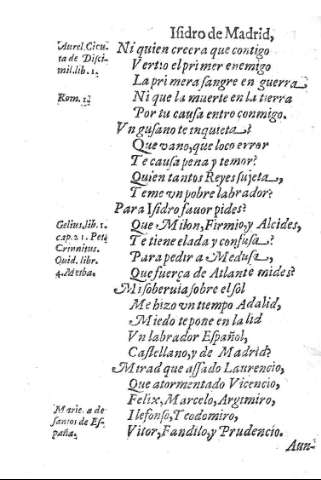 Isidro de Madrid,
Aurel. Cicu
ta de Disci-
mil.lib.1.
Rom. 1.
Gelius,lib. 1.
cap. 21. Pet.
Crinitus.
Ouid. libr.
4. Metha.
Marie. a de
santos de Es-
paña.
Ni quien creera que contigo
Vertio el primer enemigo
La primera sangre en guerra,
Ni que la muerte en la tierra
Por tu causa entro conmigo.
Vn gusano te inquieta?
Que vano, que loco error
Te causa pena y temor?
Quien tantos Reyes sujeta,
Teme vn pobre labrador?
Para Isidro fauor pides?
Que Milon, Firmio, y Alcides,
Te tiene elada y confusa?
Para pedir a Medusa,
Que fuerça de Atlante mides?
Mi soberuia sobre el sol
Me hizo vn tiempo Adalid,
Miedo te pone en la lid
Vn labrador Español,
Castellano, y de Madrid?
Mirad que assado Laurencio,
Que atormentado Vicencio,
Felix, Marcelo, Argimiro,
Ilefonso, Teodomiro,
Vitor, Fandilo, y Prudencio.
Aun-